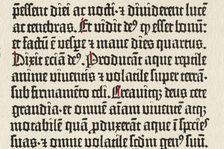 p̄essent diei ac nocti · ⁊ diuiderent lucē
ac tenebras. Et vidit deꝰ ꝙ esset bonum:
et factū ē vespe ⁊ mane dies quartus.
Dixit eciā deꝰ. Producant aque reptile
anime viuentis ⁊ volatile super terrā:
sub firmamēto celi. Creauitqꝫ deus cete
grandia · et omnē aīam viuentē atqꝫ
motabilē quā ꝓduxerant aque ī species
suas · ⁊ omne volatile scdm genus suū.